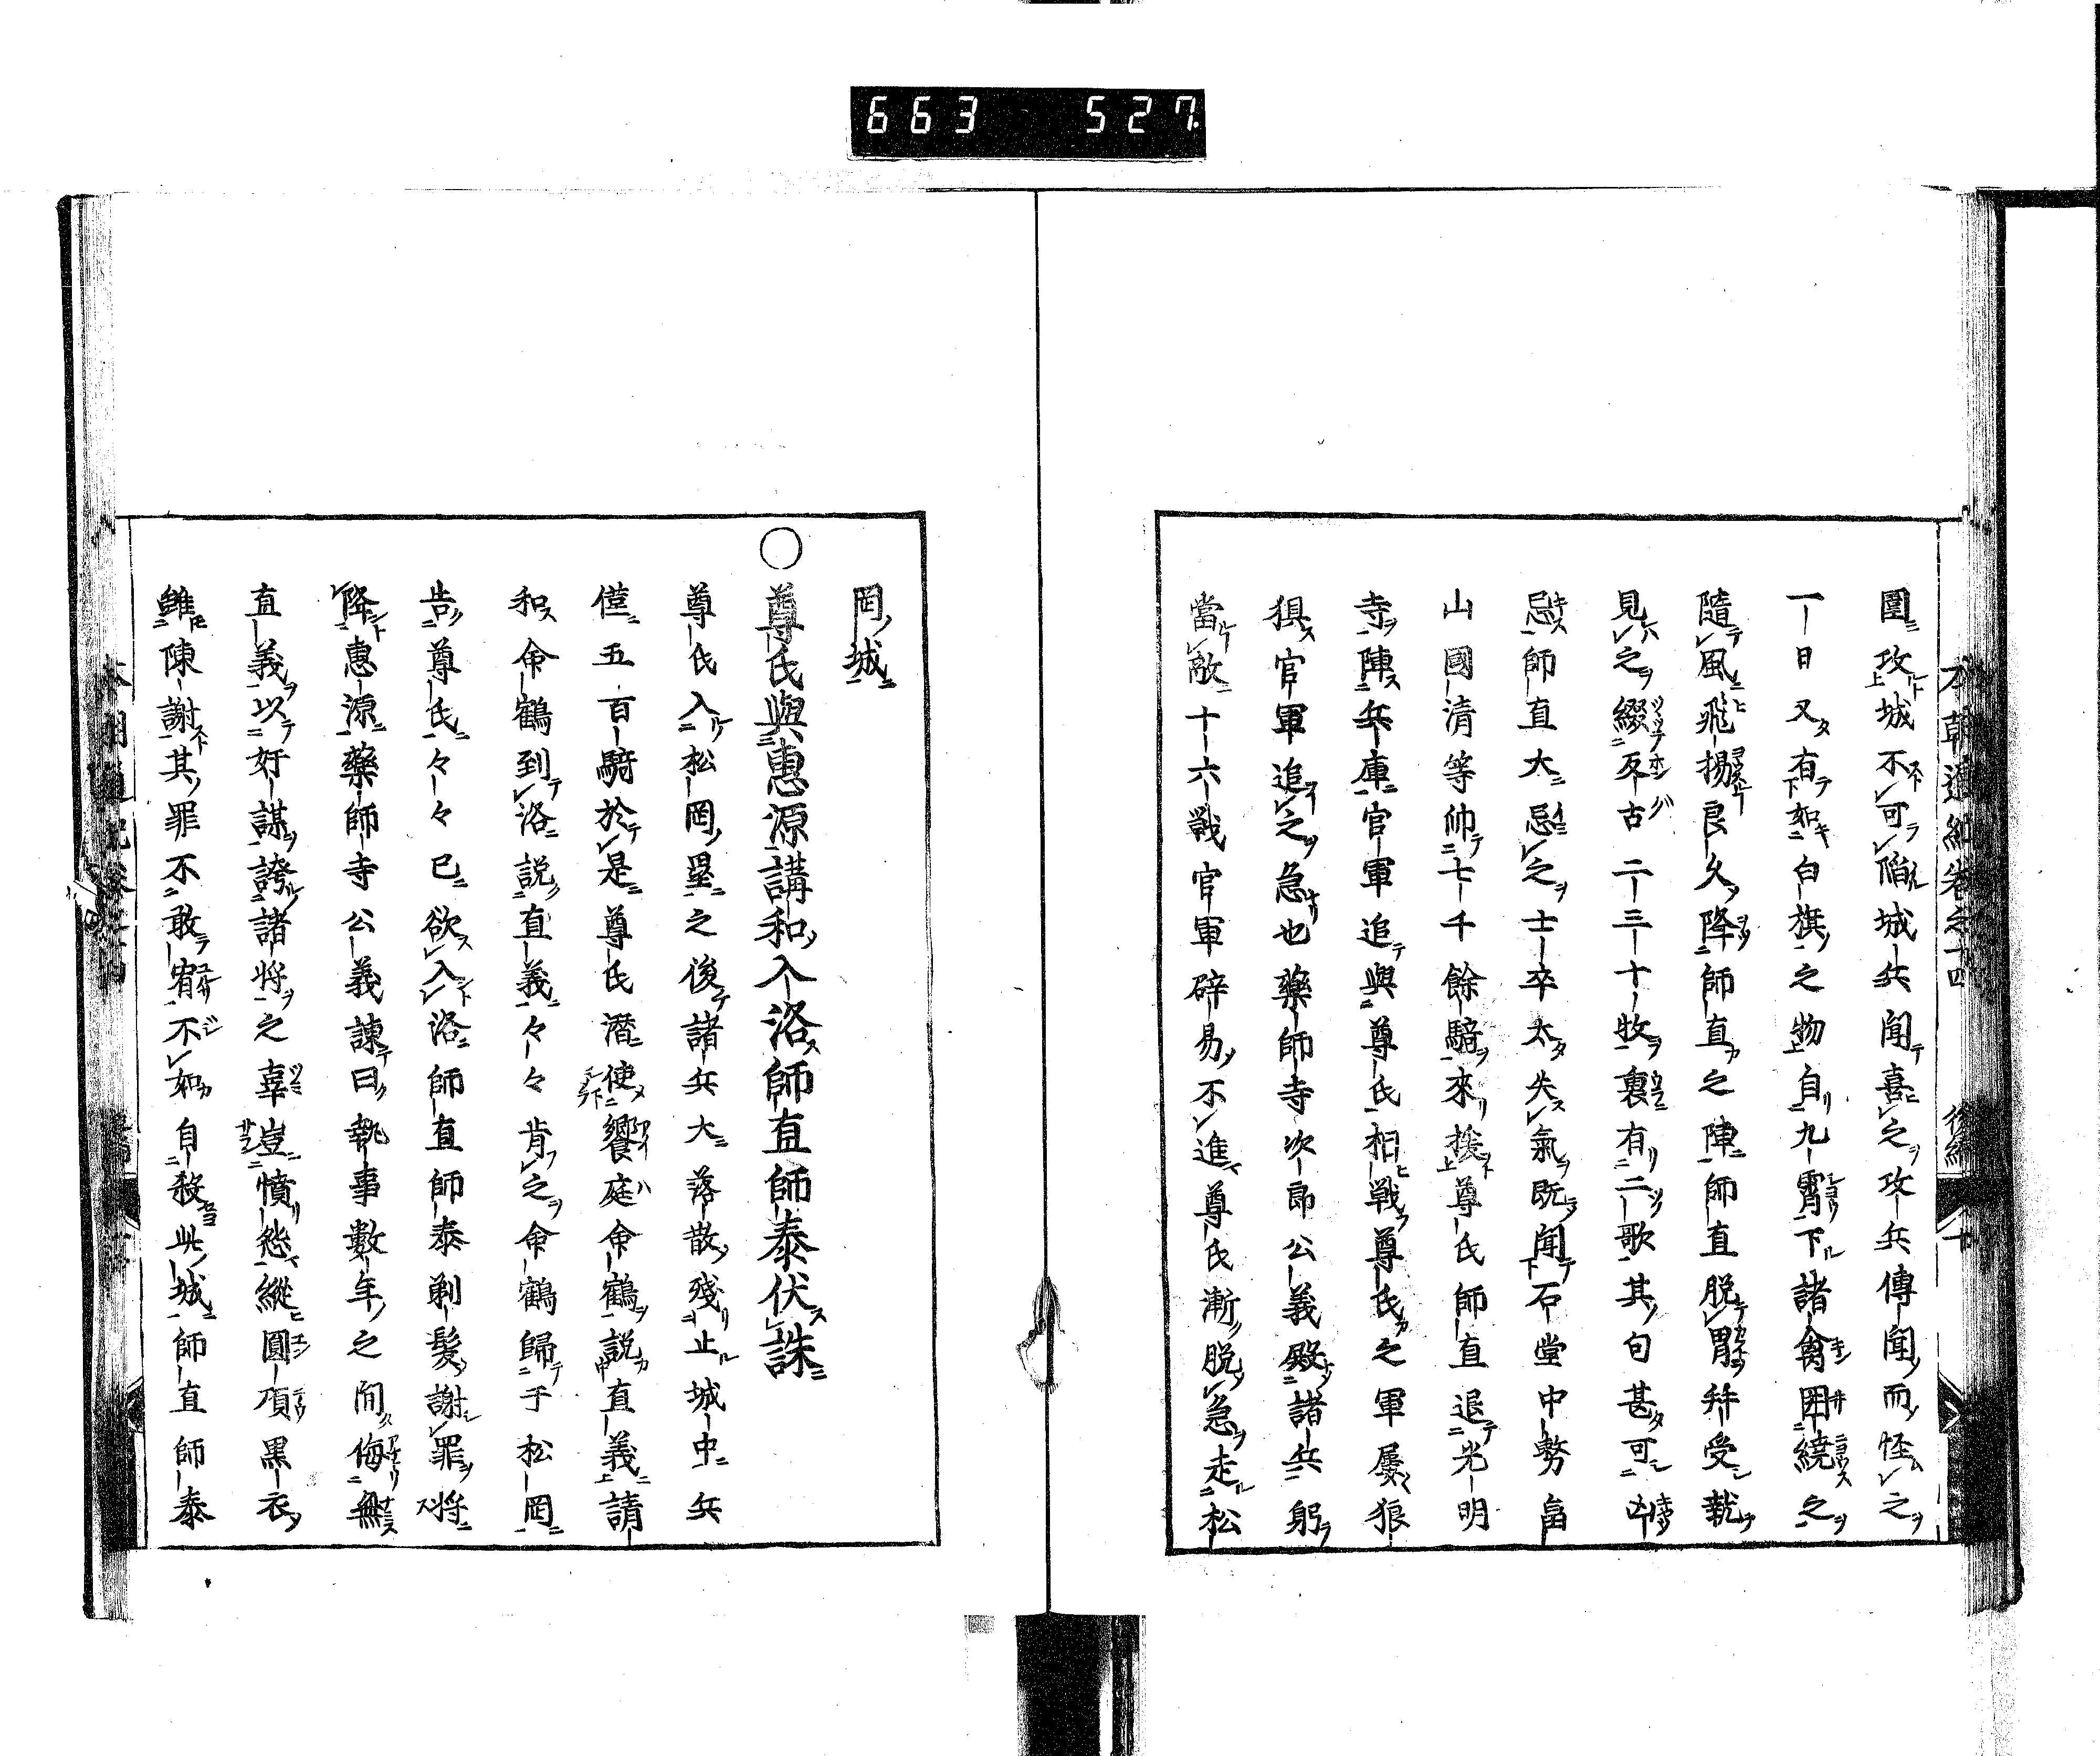 663 527
本朝通紀卷之十四 後編 廿
圍攻城不可陷城兵聞喜之攻兵傳聞而怪之
一日又有如白旗之物自九霄下諸禽囲繞之
隨風飛揚良久降師直之陣師直脱冑拜受就
見之綴反古二三十牧裏有二歌其句甚可凶
忌師直大忌之士卒太失氣既聞石堂中務畠
山國清等帥七千餘騎來援尊氏師直退光明
寺陣兵庫官軍追與尊氏相戰尊氏之軍屡狼
狽官軍追之急也藥師寺次郎公義殿諸兵躬
當敵十六戰官軍辟易不進尊氏漸脱急走松
岡城
○尊氏與惠源講和入洛師直師泰伏誅
尊氏入松岡壘之後諸兵大落散殘止城中兵
僅五百騎於是尊氏潛使饗庭命鶴説直義請
和命鶴到洛説直義々々肯之命鶴歸于松岡
告尊氏々々已欲入洛師直師泰剃髮謝罪將
降惠源藥師寺公義諫曰執事數年之間侮無
直義以奸謀誇諸將之辜豈憤怨縱圓頂黒衣
雖陳謝其罪不敢宥不如自殺此城師直師泰